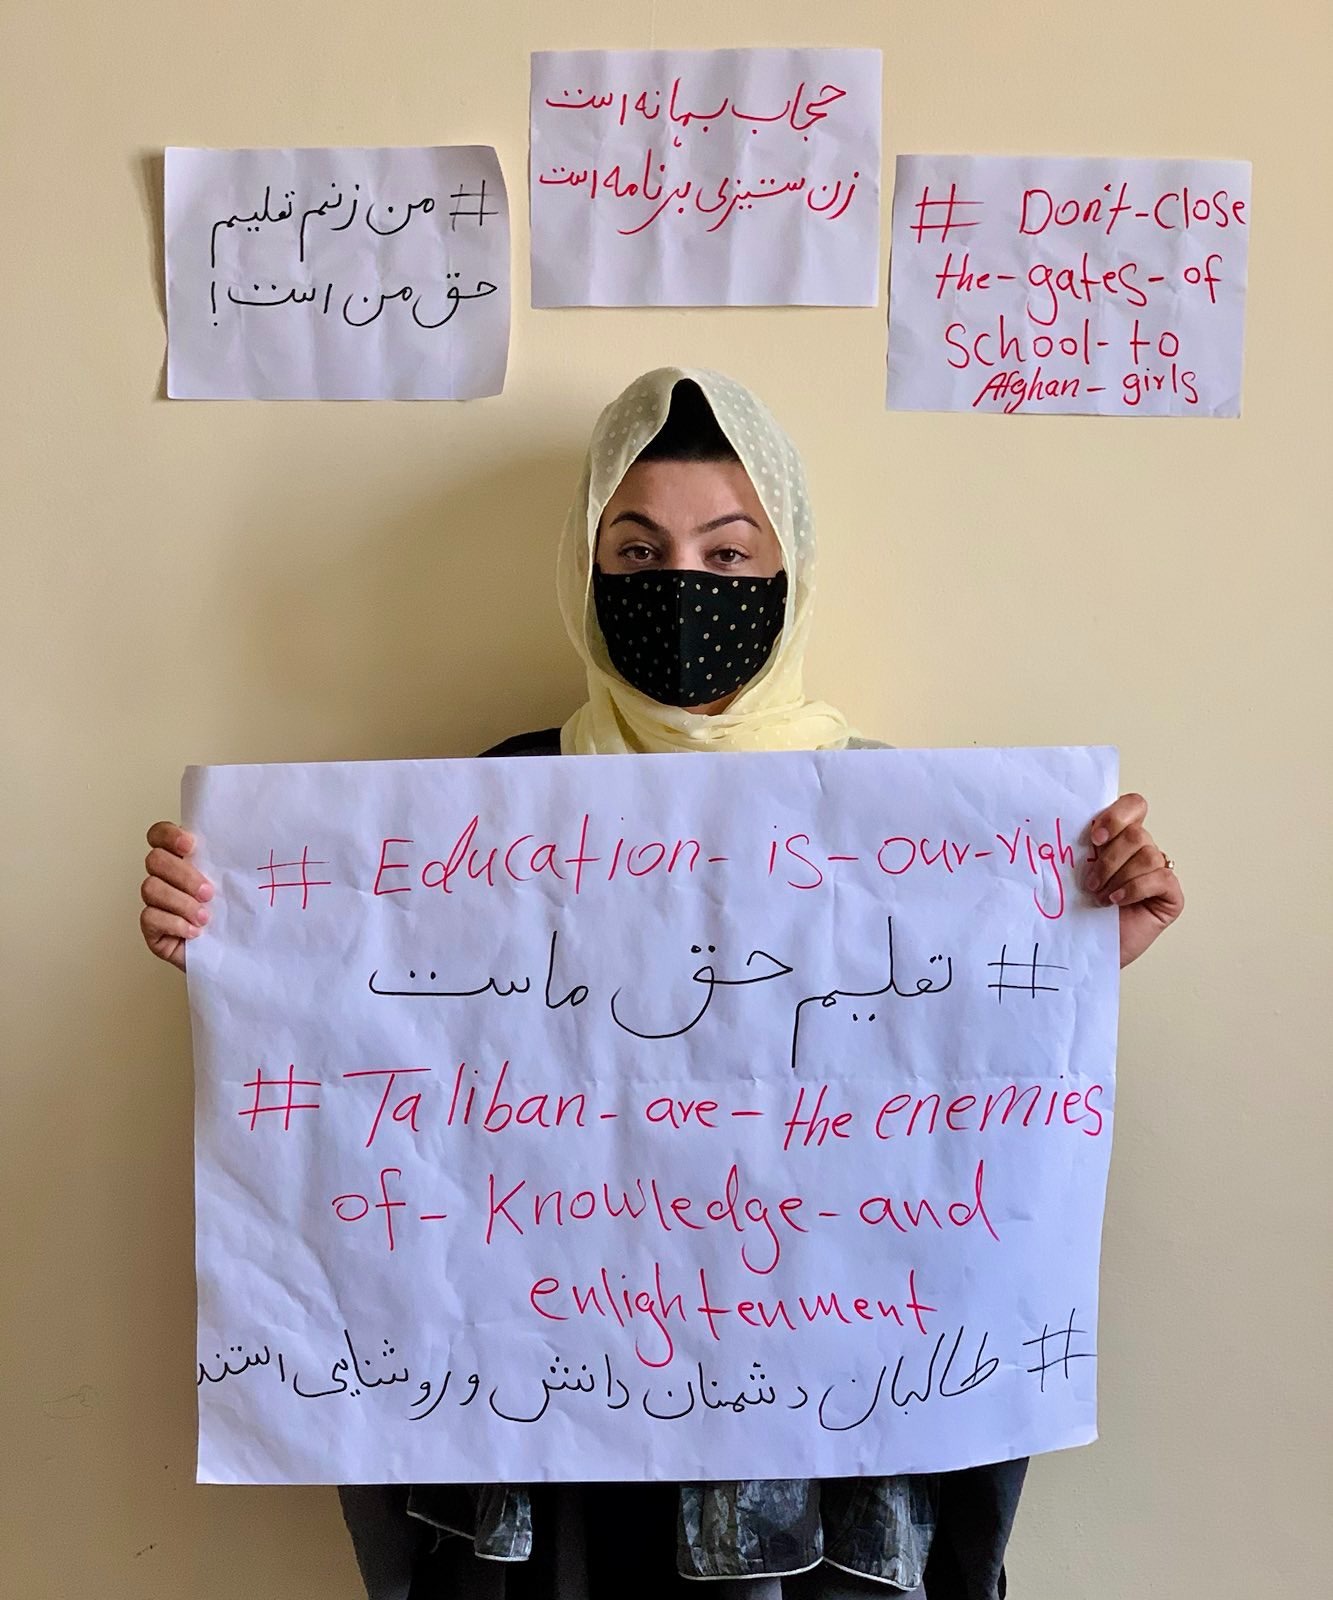 حجاب بهانه است
زن ستیزی برنامه است
# من زنم تعلیم
حق من است!
# Don't-Close
the-gates-of
School-to
Afghan-girls
# Education-is-our-right
# تعلیم حق ماست
# Taliban-are-the enemies
of-Knowledge-and
enlightenment
# طالبان دشمنان دانش و روشنایی استند